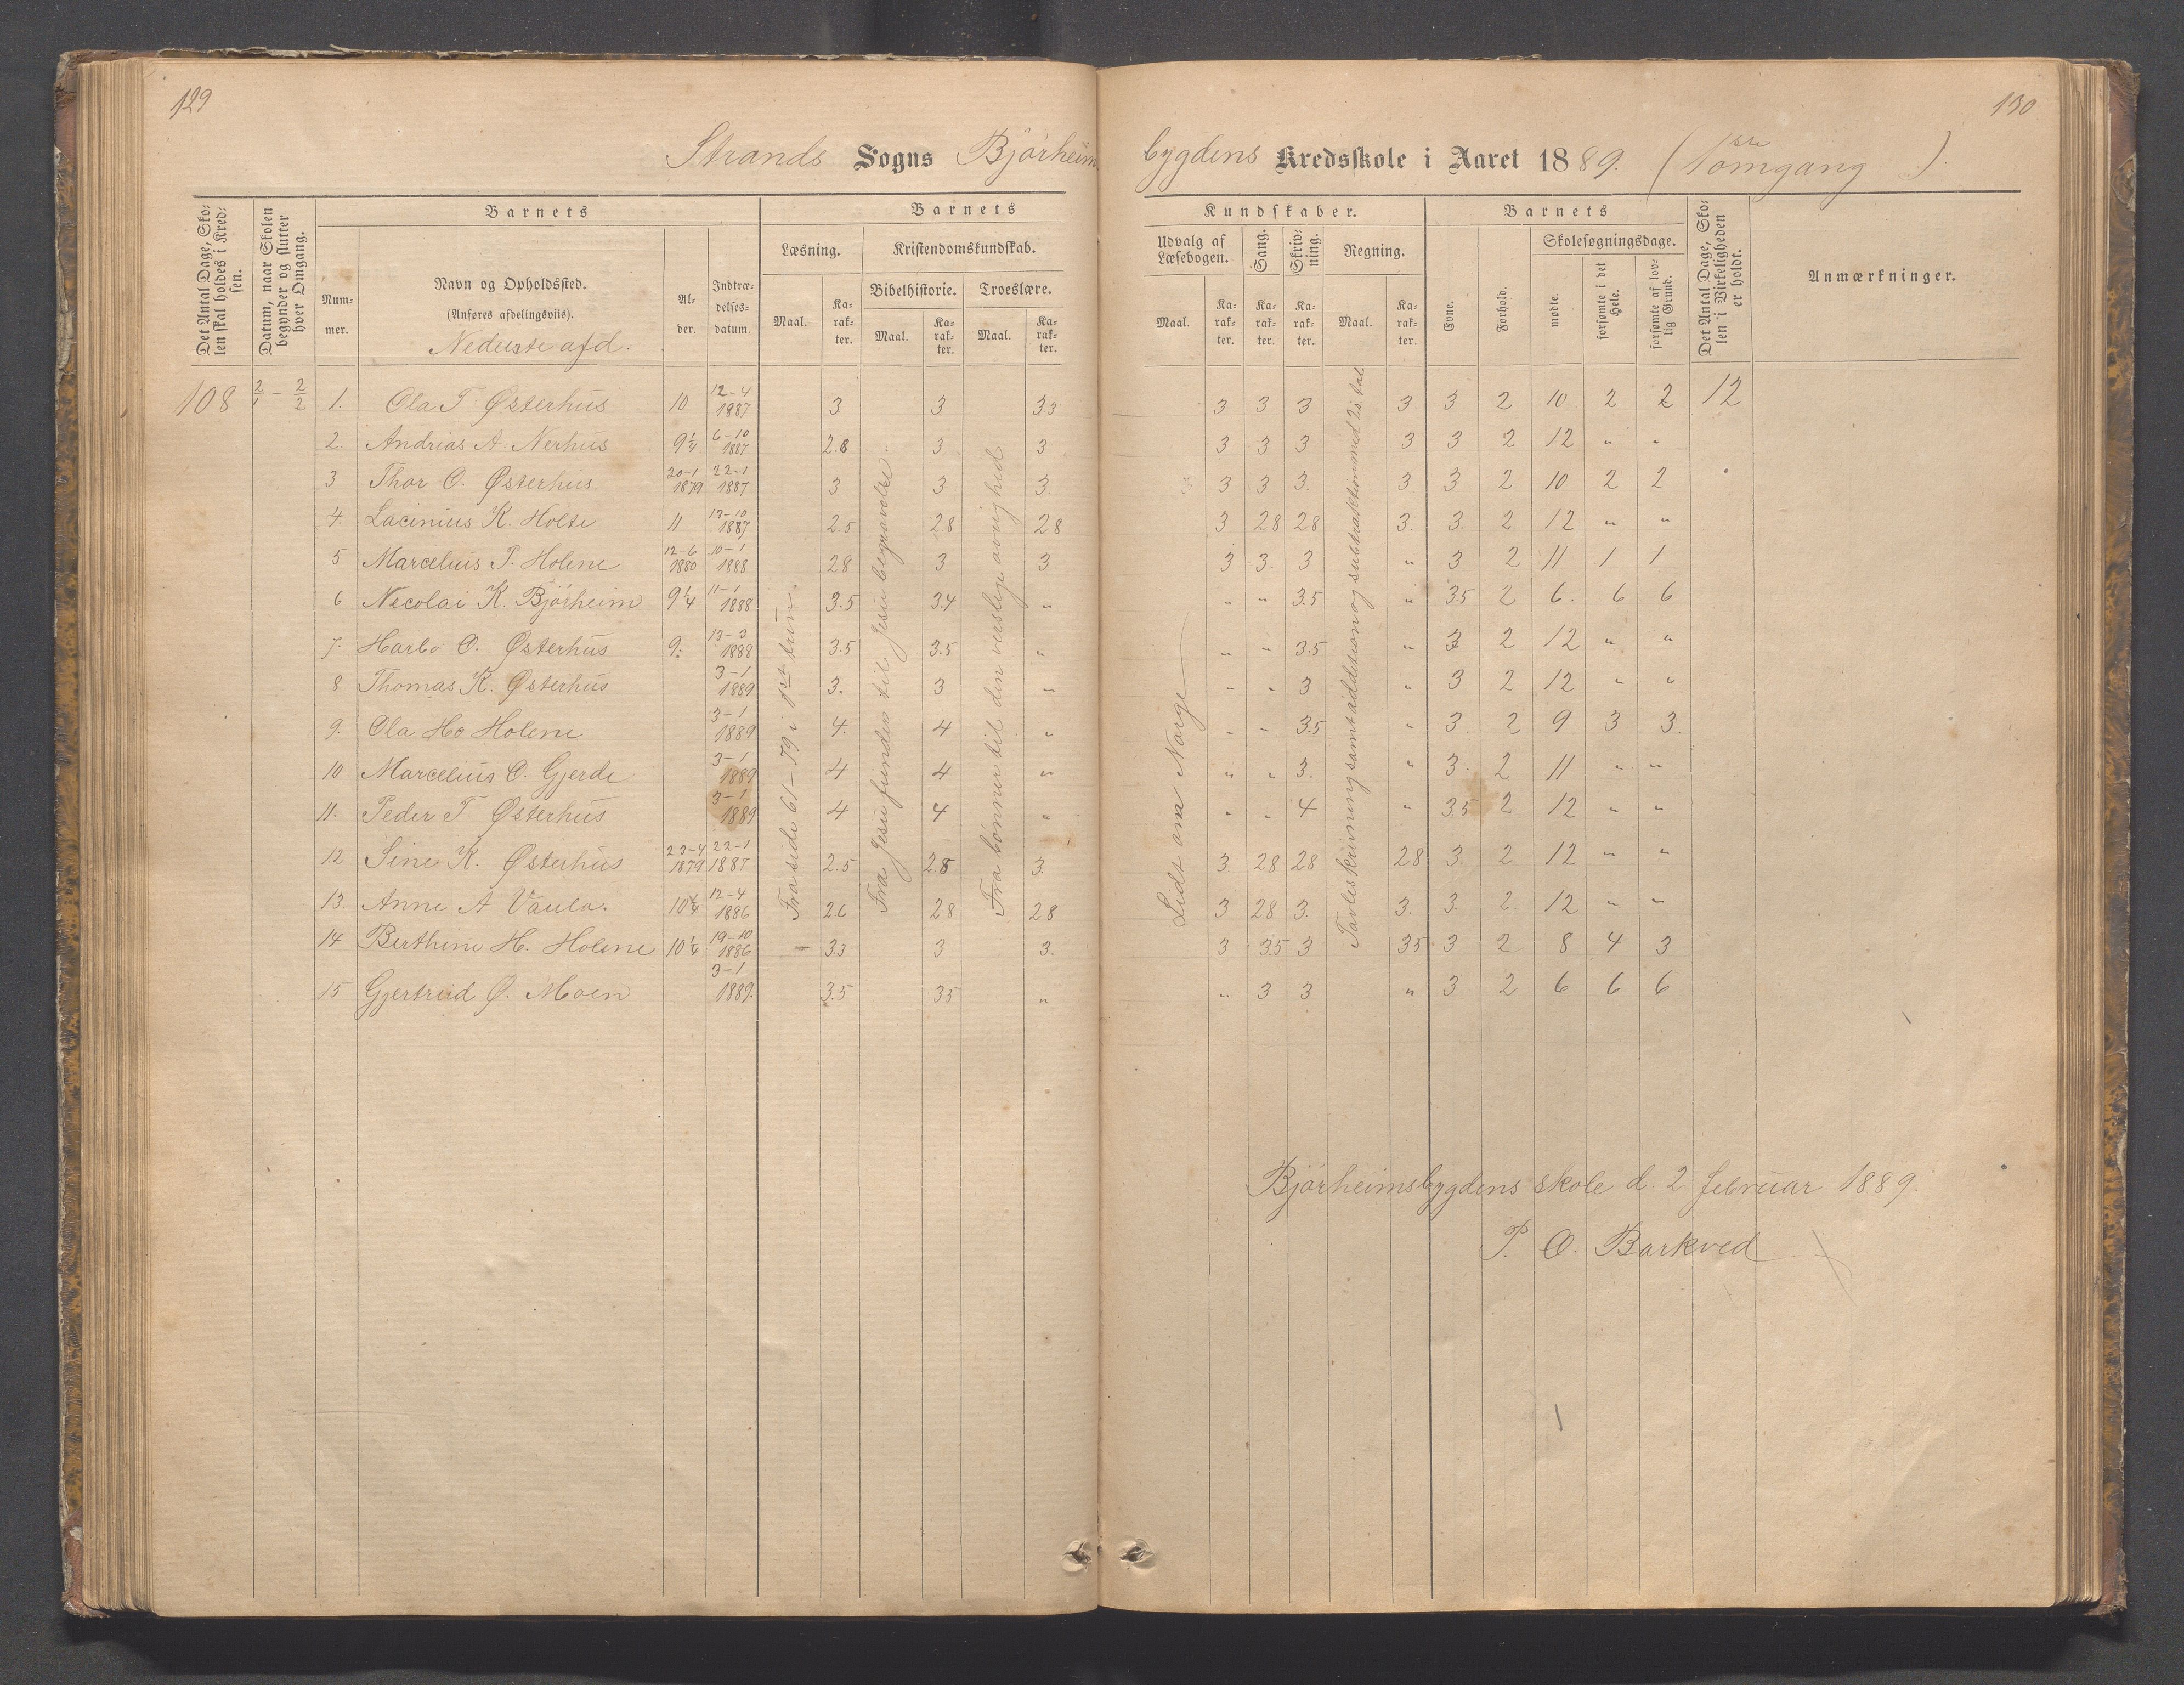 129
130
Strands Sogns Bjørheims
bygdens Kredsskole i Aaret 1889. (1ste omgang)
Det Antal Dage, Skolen skal holdes i Kredsen.
Datum, naar Skolen begynder og slutter hver Omgang.
Barnets
Nummer.
Navn og Opholdssted.
(Anføres afdelingsviis).
Nederste afd.
Alder.
Indtrædelses-datum.
Barnets
Læsning.
Maal.
Karakter.
Kristendomskundskab.
Bibelhistorie.
Maal.
Karakter.
Troeslære.
Maal.
Karakter.
Kundskaber.
Udvalg af Læsebogen.
Maal.
Karakter.
Sang.
Karakter.
Skrivning.
Karakter.
Regning.
Maal.
Karakter.
Barnets
Evne.
Forhold.
Skolesøgningsdage.
mødte.
forsømte i det Hele.
forsømte af lovlig Grund.
Det Antal Dage, Skolen i Virkeligheden er holdt.
Anmærkninger.
108 2/1 - 2/2 1. Ola T Østerhus 10 12-4 1887 3 3 3.3 3 3 3 3 3 2 10 2 2 12
2. Andrias A. Nerhus 9 1/4 6-10 1887 2.8 3 3 3 3 3 3 3 2 12 " "
3 Thor O. Østerhus 20-1 1879 22-1 1887 3 3 3. 3 3 3. 3 3 2 10 2 2
4. Lacinius K. Holte 11 13-10 1887 2.5 28 28 3 28 28 3. 3. 2 12 " "
5 Marcelius P. Holene 12-6 1880 10-1 1888 28 3 3 3 3. 3 " 3 2 11 1 1
6 Necolai K. Bjørheim 9 1/4 11-1 1888 3.5 3.4 " " " 3.5 " 3.5 2 6. 6 6
7. Harbo O. Østerhus 9. 13-3 1888 3.5 3.5 " " " 3.5 " 3 2 12 " "
8 Thomas K. Østerhus 3-1 1889 3. 3 " " " 3 " 3 2 12 " "
9. Ola H. Holene 3-1 1889 4. 4 " " " 3.5 " 3 2 9 3 3.
10 Marcelius O. Gjerde 3-1 1889 4 4 " " " 3. " 3. 2 11 " "
11. Peder T Østerhus 3-1 1889 4 4 " " " 4 " 3.5 2 12 " "
12 Sine K. Østerhus 23-4 1879 22-1 1887 2.5 2.8 3. 3. 28 28 28 3. 2 12 " "
13. Anne A Vaula. 10 3/4 12-4 1886 2.6 28 28 3 28 3. 3. 3. 2. 12 " "
14 Berthine H. Holene 10 1/4 19-10 1886 3.3 3 3. 3 3.5 3 35 3 2 8 4 3
15 Gjertrud Ø. Moen 3-1 1889. 3.5 35 " " 3 3 " 3 2 6 6 6
Fra side 61-79 i 1ste trin.
Fra Jesu fiender til Jesu begravelse.
Fra bønner til den verslige øvrighed
Lidt om Norge
Tavleskrivning samt addition og subtraktion med 2 s. tal
Bjørheimsbygdens skole d. 2 februar 1889.
P. O. Barkved